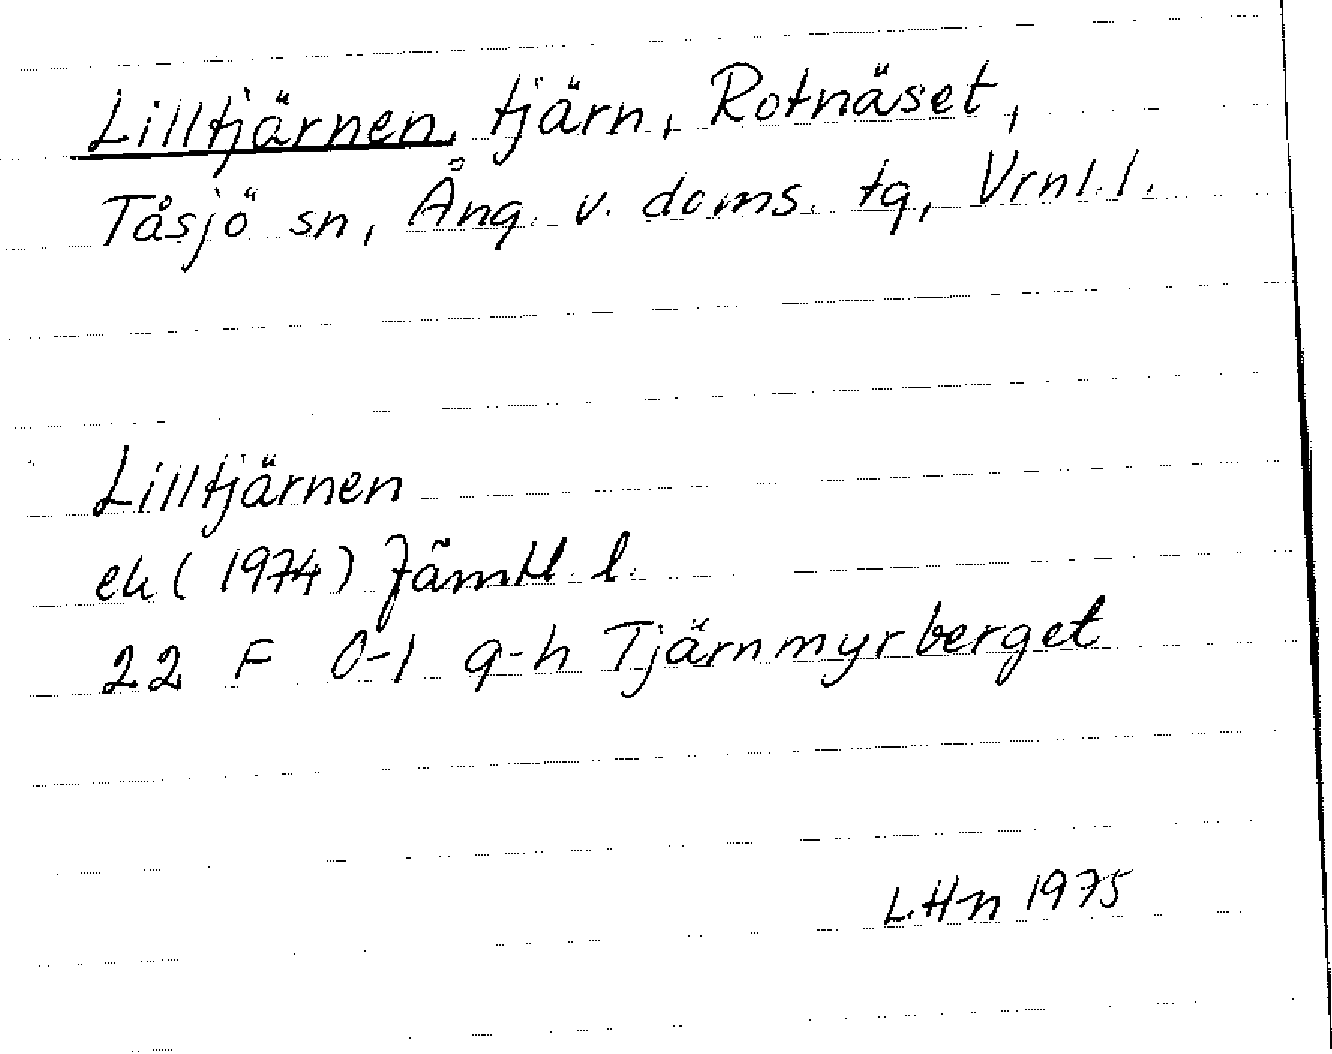 Lilltjärnen, tjärn, Rotnäset,
Tåsjö sn, Ång. v. doms. tg, Vrnl. l.
Lilltjärnen
ek (1974) Jämtl. l.
22 F 0-1 g-h Tjärnmyrberget
L.Hn 1975